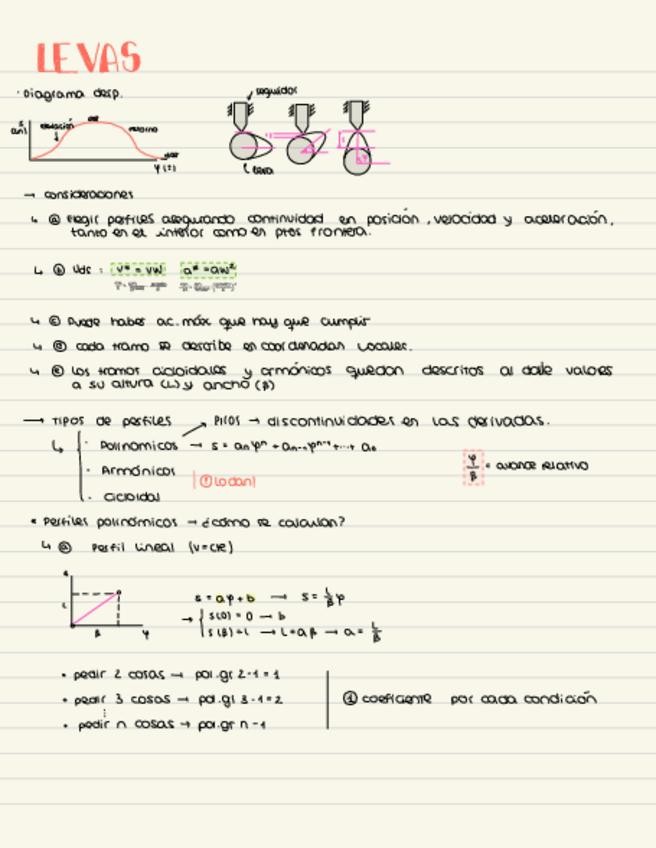 LEVAS
· Diagrama desp.
seguidor
elevación
retorno
φ(t)
leva
→ consideraciones
↳ ⓐ Elegir perfiles asegurando continuidad en posición, velocidad y aceleración,
tanto en el interior como en ptos frontera.
↳ ⓑ Uds: v* = vw a* = aw²
↳ ⓒ Puede haber ac. máx que hay que cumplir
↳ ⓓ cada tramo se describe en coordenadas locales.
↳ ⓔ los tramos cicloidales y armónicos quedan descritos al dalle valores
a su altura (L) y ancho (β)
→ TIPOS de perfiles
PICOS → discontinuidades en las derivadas.
↳ · Polinómicos → s = anφⁿ + an-1φⁿ⁻¹ + ... + a0
· Armónicos
! Lo dan!
φ/β = avance relativo
· cicloidal
• Perfiles polinómicos → ¿cómo se calculan?
↳ ⓐ Perfil lineal (v=cte)
L
β
φ
s = aφ + b → s = L/β φ
→ s(0) = 0 → b
s(β) = L → L = aβ → a = L/β
• pedir 2 cosas → pol.gr 2-1 = 1
• pedir 3 cosas → pol.gr 3-1 = 2
⋮
• pedir n cosas → pol.gr n-1
① coeficiente por cada condición